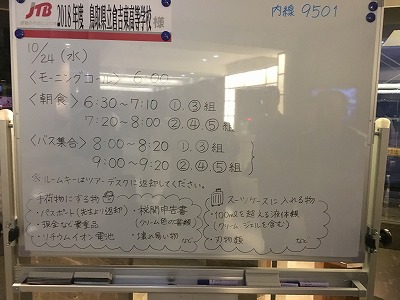 JTB
2018年度 鳥取県立倉吉東高等学校 様
内線 9501
10/24 (水)
〈モーニングコール〉 6:00
〈朝食〉 6:30～7:10 ①、③組
7:20～8:00 ②、④、⑤組
〈バス集合〉 8:00～8:20 ①、③組
9:00～9:20 ②、④、⑤組
※ ルームキーはツアーデスクに返却してください。
手荷物にする物
・パスポート(先生より返却)
・現金など貴重品
・リチウムイオン電池
・税関申告書
(クリーム色の書類)
・壊れ易い物 など
スーツケースに入れる物
・100mlを超える液体類
(クリーム、ジェルを含む)
・刃物類 など